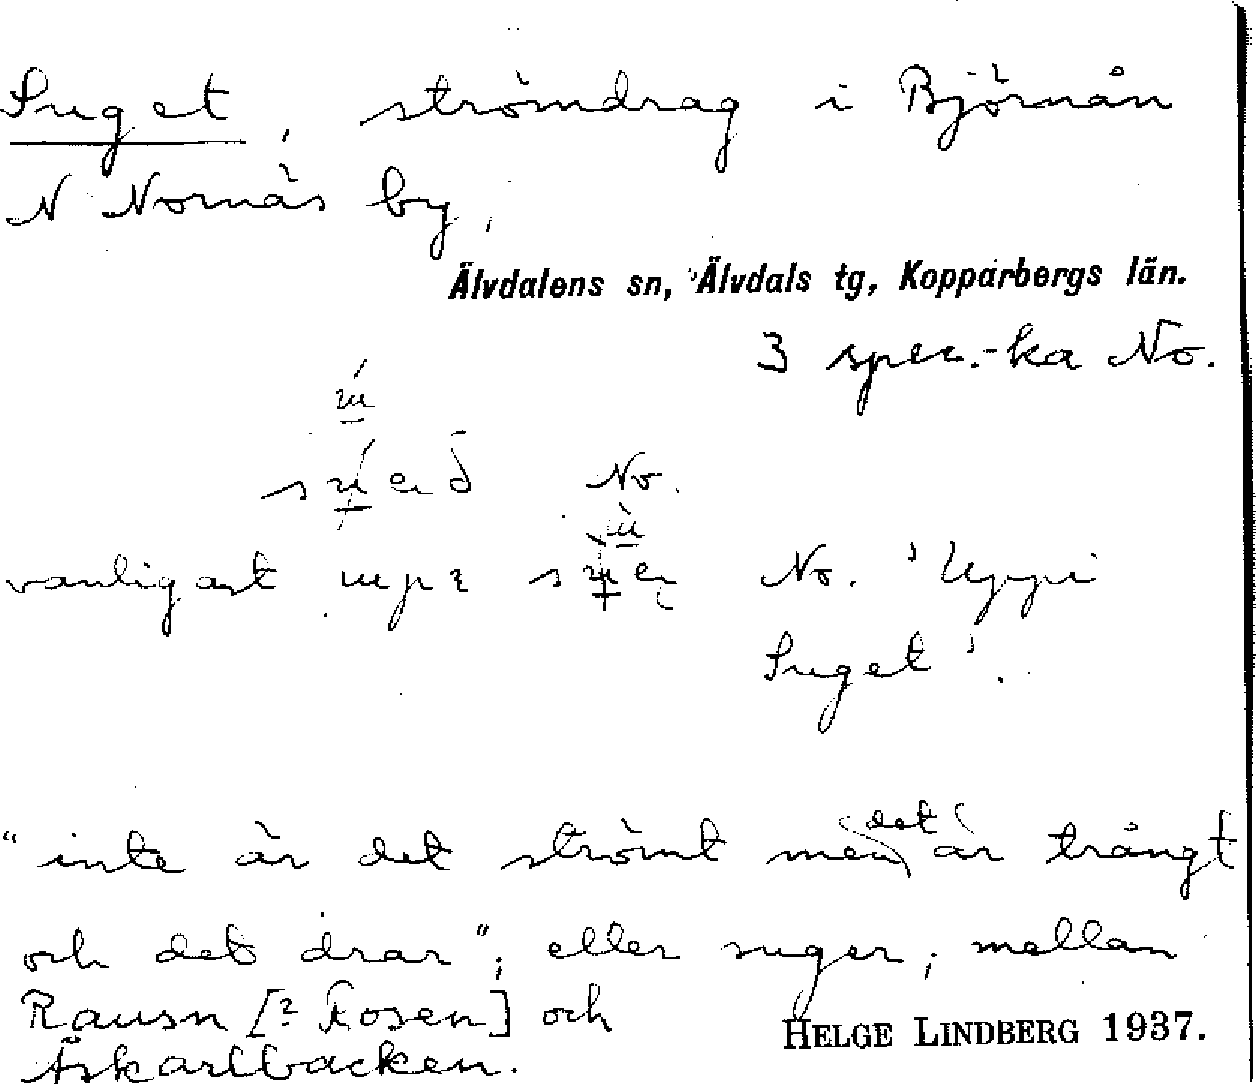 Suget, strömdrag i Björnån
N Nornäs by,
Älvdalens sn, Älvdals tg, Kopparbergs län.
3 spec.-ka No.
No.
vanligast No. 'Uppi
Suget'.
"inte är det strömt men (det) är trångt
och det drar"; eller suger; mellan
Rausn [? Rosen] och
Askarlbacken.
HELGE LINDBERG 1937.